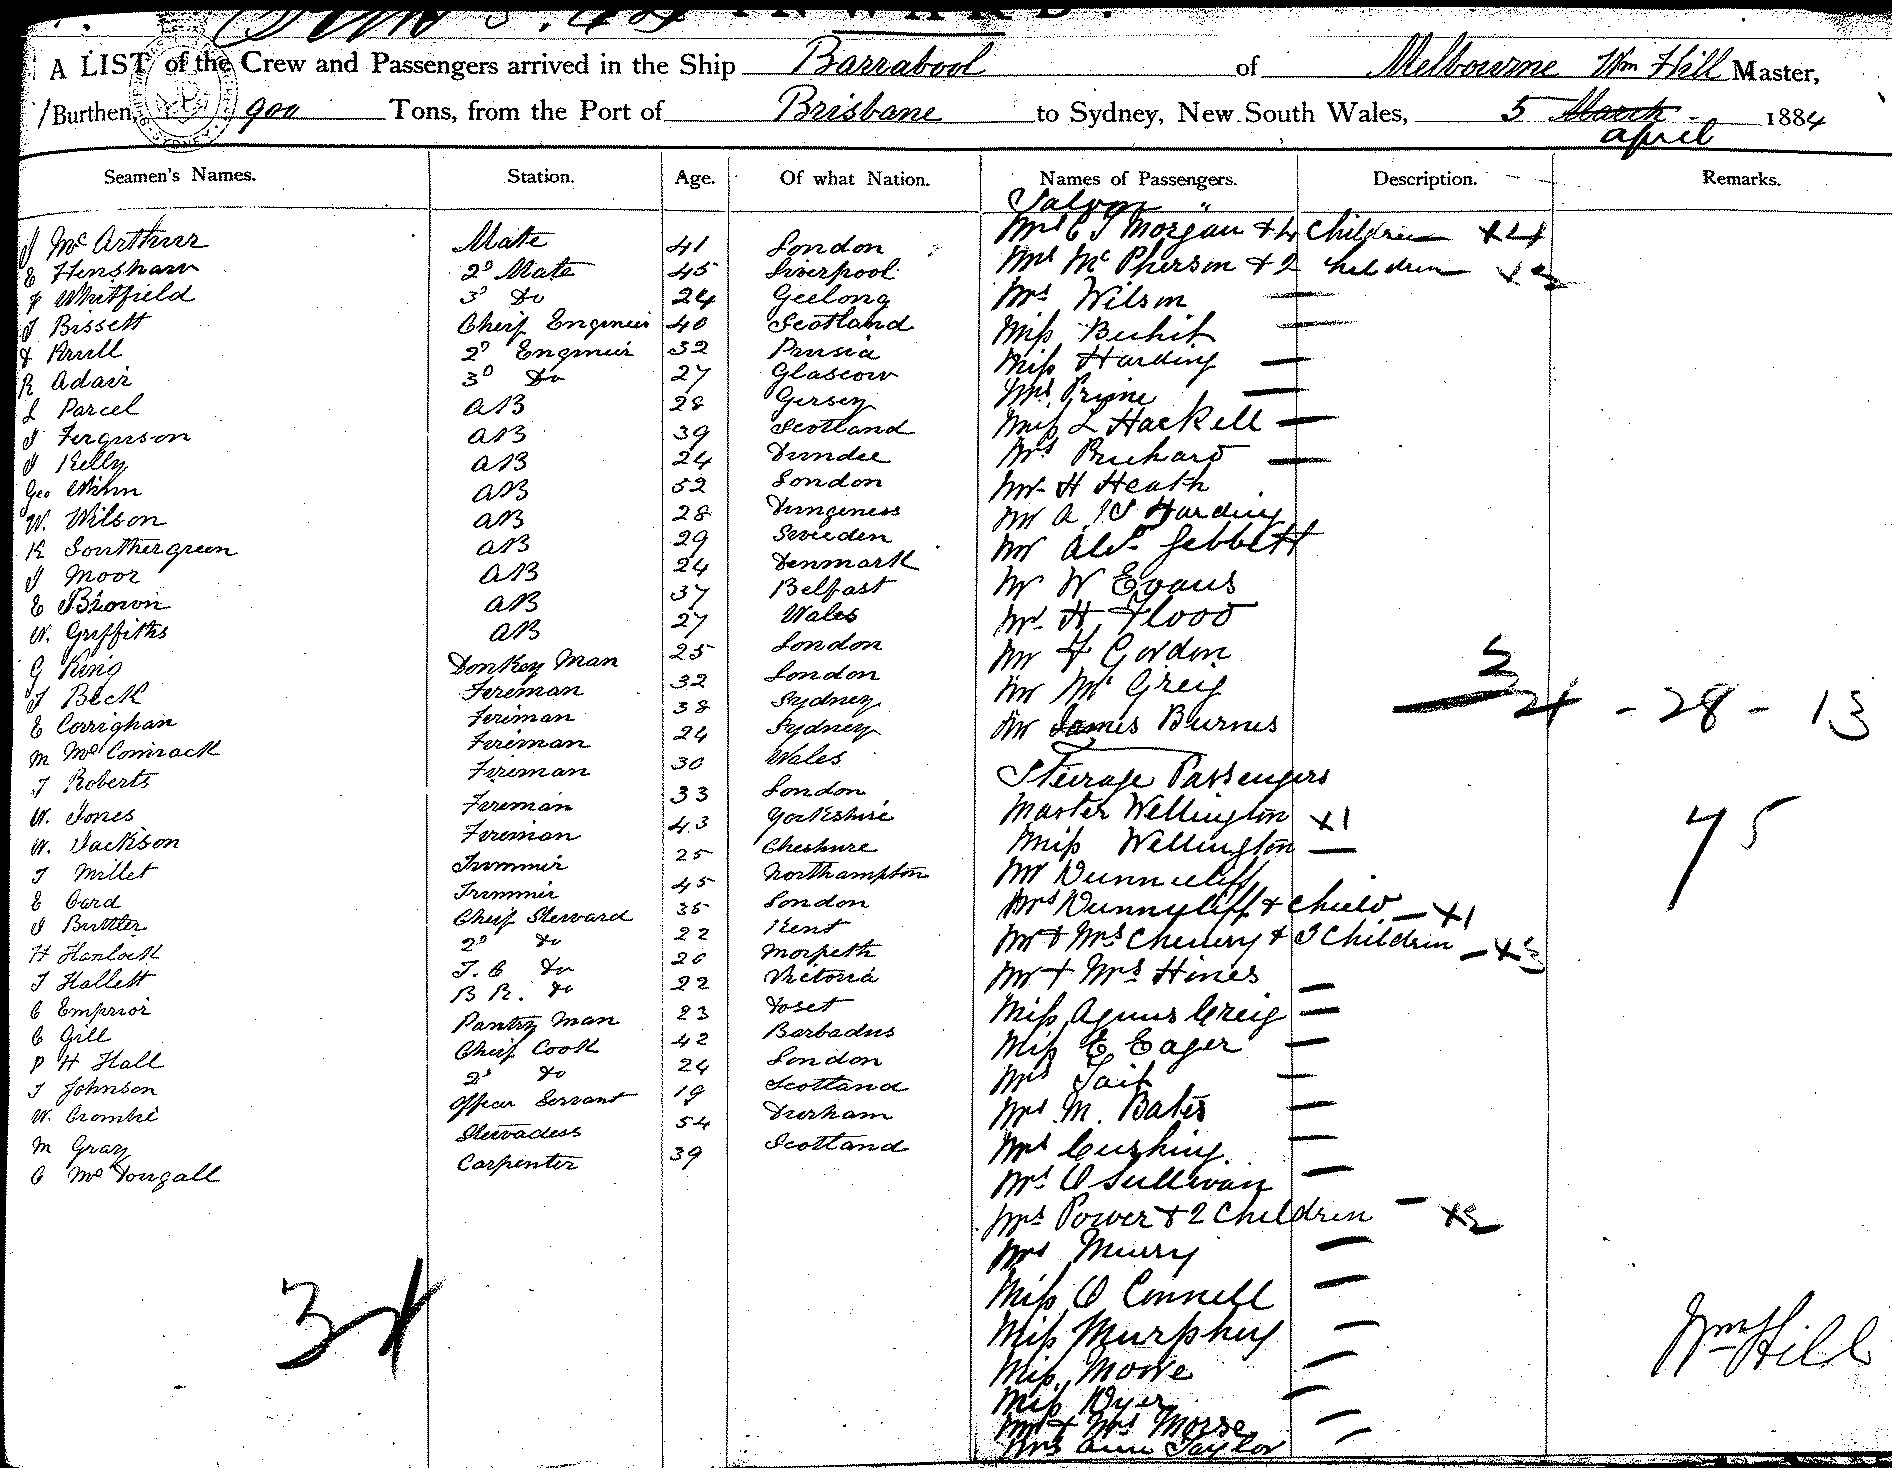 INWARD.
A LIST of the Crew and Passengers arrived in the Ship Barrabool of Melbourne Wm Hill Master,
Burthen, 900 Tons, from the Port of Brisbane to Sydney, New South Wales, 5 March April 1884
Seamen's Names. Station. Age. Of what Nation. Names of Passengers. Description. Remarks.
J McArthur Mate 41 London
E Henshaw 2d Mate 45 Liverpool
F Whitfield 3d Do 24 Geelong
J Bissett Cheif Engineer 40 Scotland
F Krull 2d Engineer 32 Prusia
R Adair 3d Do 27 Glascow
L Parcel AB 28 Gersey
J Ferguson AB 39 Scotland
J Kelly AB 24 Dundee
Geo AB 52 London
W. Wilson AB 28 Dungeness
R Southergreen AB 29 Sweeden
J Moor AB 24 Denmark
E Brown AB 37 Belfast
W. Griffiths AB 27 Wales
G King Donkey Man 25 London
J Beck Fereman 32 London
E Corrighan Fireman 38 Sydney
M McComrack Fireman 24 Sydney
T Roberts Fireman 30 Wales
W. Jones Fireman 33 London
W. Jackson Fireman 43 Yorkshire
T Millet Trimmer 25 Cheshure
E Card Trimmer 45 Northampton
J Buttler Cheif Steward 35 London
H Hanlock 2d Do 22 Kent
T Hallett T. C Do 20 Morpeth
C Emprior B R. Do 22 Victoria
C Gill Pantry Man 23 Doset
P H Hall Cheif Cook 42 Barbadus
T Johnson 2d Do 24 London
W. Crombie Officer Servant 19 Scotland
M Gray Stewadess 54 Durham
C McDougall Carpenter 39 Scotland
34
Saloon
Mrs C J Morgan & 4 Children +4
Mrs McPherson & 2 Children +2
Mrs Wilson
Miss
Miss Harding
Mrs Prime
Miss L Hackell
Mrs Prichard
Mr H Heath
Mr A Harding
Mr Alex Gebbett
Mr W Evans
Mr H Flood
Mr F Gordon
Mr McGreig
Mr James Burnes
Steerage Passengers
Master Wellington +1
Miss Wellington
Mr Dunnicliff
Mrs Dunnycliff & Child +1
Mr & Mrs Chenery & 3 Children +3
Mr & Mrs Hines
Miss Agnus Creig
Miss E Eager
Mrs Tait
Mrs M. Bates
Mrs Cushing
Mrs O Sullivan
Mrs Power & 2 Children +2
Mrs Murry
Miss O Connell
Miss Murphy
Miss Moore
Miss Dyer
Mr & Mrs Morse
Mrs Ann Taylor
24 - 28 - 13
75
Wm Hill